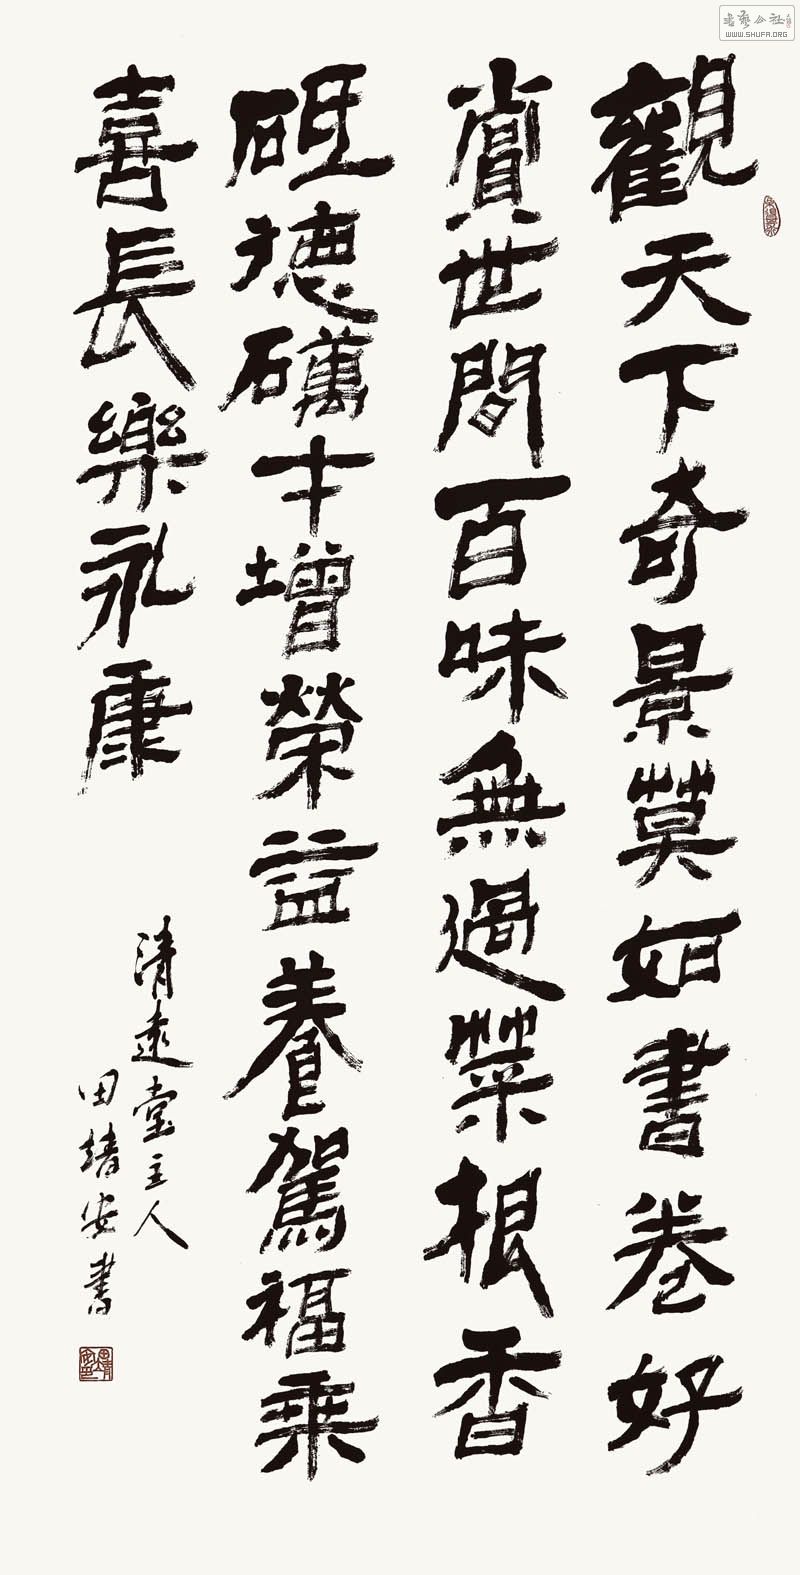 觀天下奇景莫如書卷好
賞世間百味無過菜根香
砥德礪才增榮益養駕福乘
喜長樂永康
清遠堂主人
田靖安書
書藝公社
WWW.SHUFA.ORG